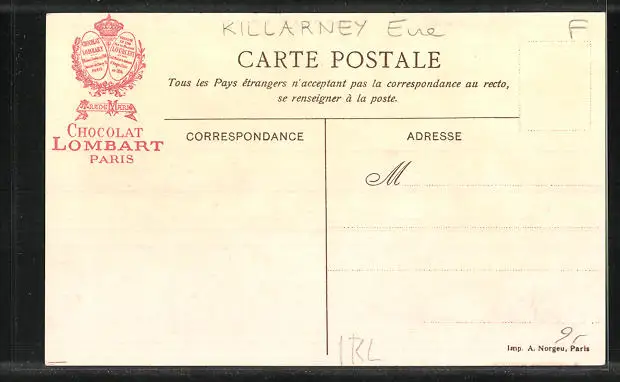 KILLARNEY Eire F
CARTE POSTALE
Tous les Pays étrangers n'acceptant pas la correspondance au recto,
se renseigner à la poste.
CHOCOLAT
LOMBART
PARIS
CORRESPONDANCE ADRESSE
M
9,-
IRL
Imp. A. Norgeu, Paris